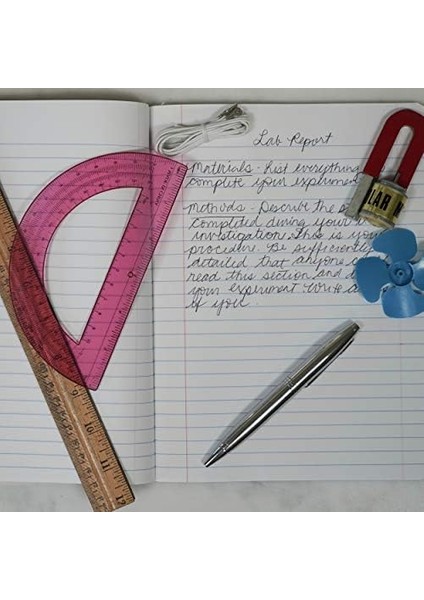 Lab Report
Materials - List everything
complete your experiment
LAB
Methods - Describe the
completed during your
investigation this is you
procedure. Be sufficien
detailed that anyone
read this section and
your experiment were
if you.
9
10
11
12
6